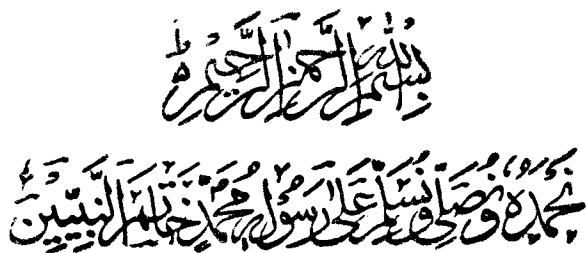 بِسْمِ اللهِ الرَّحْمٰنِ الرَّحِيْمِ ط
نَحْمَدُهٗ وَنُصَلِّيْ وَنُسَلِّمُ عَلٰى رَسُوْلِهٖ مُحَمَّدٍ خَاتَمِ النَّبِيِّيْنَ